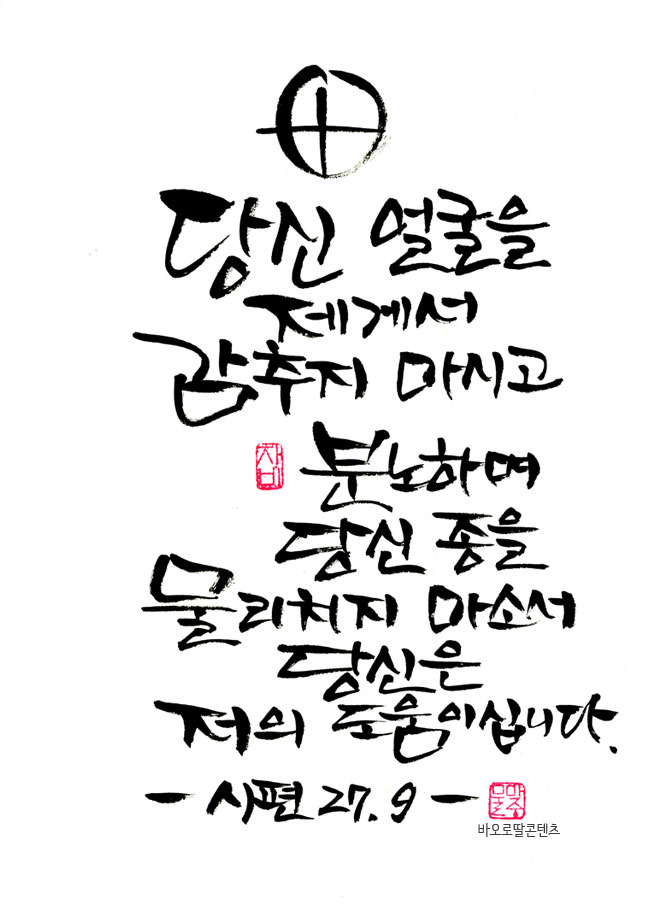 당신 얼굴을
제게서
감추지 마시고
분노하며
당신 종을
물리치지 마소서
당신은
저의 도움이십니다.
- 시편 27. 9 -
바오로딸콘텐츠